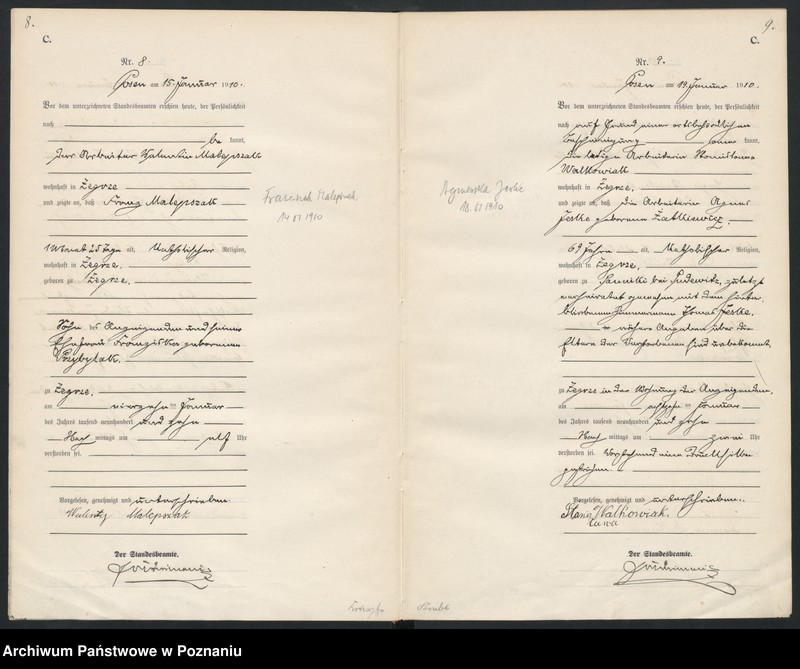 8.
C.
Nr. 8.
Posen am 15. Januar 1910.
Vor dem unterzeichneten Standesbeamten erschien heute, der Persönlichkeit
nach
be kannt,
der Arbeiter Valentin Malepszak
wohnhaft in Żegrze
und zeigte an, daß Franz Malepszak
1 Monat 25 Tage alt, Katholischer Religion,
wohnhaft in Żegrze,
geboren zu Żegrze,
Sohn des Anzeigenden und seiner
Ehefrau Franziska geborenen
Przybylak.
zu Żegrze,
am vierzehn ten Januar
des Jahres tausend neunhundert und zehn
Nach mittags um elf Uhr
verstorben sei.
Vorgelesen, genehmigt und unterschrieben.
Walenty Malepszak
Der Standesbeamte.
Franciszek Malepszak
14.01.1910
9.
C.
Nr. 9.
Posen am 19. Januar 1910.
Vor dem unterzeichneten Standesbeamten erschien heute, der Persönlichkeit
nach auf Grund einer ortsbehördlichen
Bescheinigung aner kannt,
die ledige Arbeiterin Stanislawa
Walkowiak
wohnhaft in Żegrze,
und zeigte an, daß die Arbeiterin Agnes
Jeske geborene Żatkiewicz,
69 Jahre alt, Katholischer Religion,
wohnhaft in Żegrze,
geboren zu bei Pudewitz, zuletzt
verheiratet gewesen mit dem
Zimmermann Thomas Jeske,
nähere Angaben über die
Eltern der Verstorbenen sind unbekannt,
zu Żegrze in der Wohnung der Anzeigenden,
am achtzehn ten Januar
des Jahres tausend neunhundert und zehn
Nach mittags um zwei Uhr
verstorben sei. Vorstehend eine Druckstelle
gestrichen.
Vorgelesen, genehmigt und unterschrieben.
Stanis Walkowiak.
ława
Der Standesbeamte.
Agnieszka Jeske
18.01.1910
Archiwum Państwowe w Poznaniu